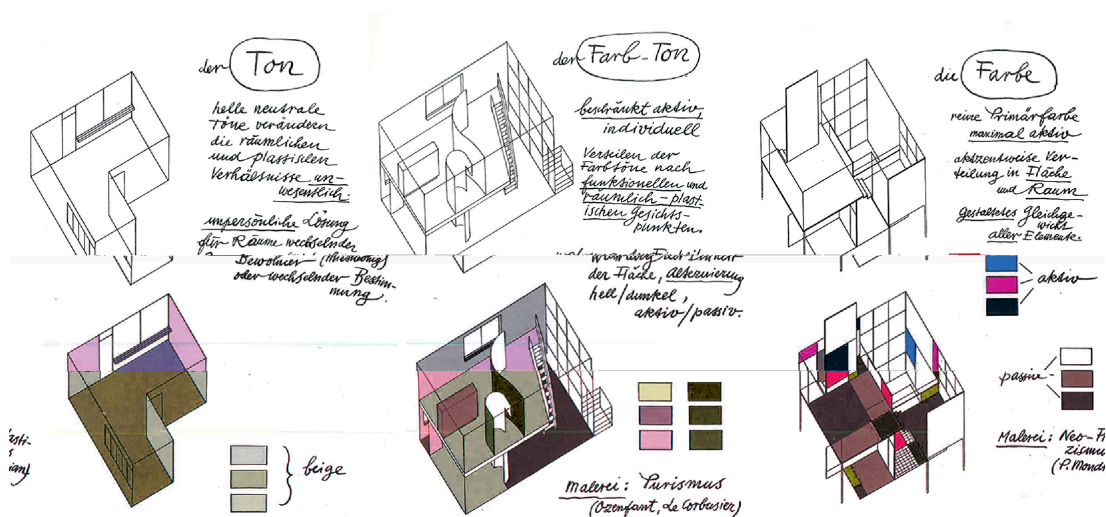 der Ton
helle neutrale
Töne verändern
die räumlichen
und plastischen
Verhältnisse un-
wesentlich.
unpersönliche Lösung
für Räume wechselnder
Bewohner
oder wechselnder Bestim-
mung.
beige
der Farb-Ton
beschränkt aktiv,
individuell
Verteilen der
Farbtöne nach
funktionellen und
räumlich-plast-
ischen Gesichts-
punkten.
der Fläche, Alternierung
hell/dunkel,
aktiv/passiv.
Malerei: Purismus
(Ozenfant, Le Corbusier)
die Farbe
reine Primärfarbe
maximal aktiv
akzentweise Ver-
teilung in Fläche
und Raum
gestaltetes Gleichge-
wicht
aller Elemente.
aktiv
passiv
Malerei: Neo-
zismu
(P. Mond